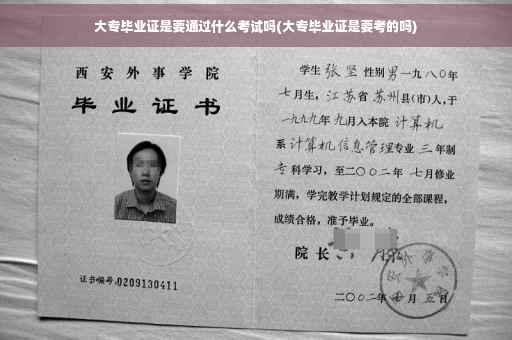 大专毕业证是要通过什么考试吗(大专毕业证是要考的吗)
西安外事学院
毕业证书
证书编号:0209130411
学生 张坚 性别 男 一九八〇年
七月生，江苏省 苏州县(市)人，于
一九九九年 九月入本院 计算机
系 计算机信息管理专业 三 年制
专科学习，至二〇〇二年 七月修业
期满，学完教学计划规定的全部课程，
成绩合格，准予毕业。
院 长
二〇〇二年 月 五日